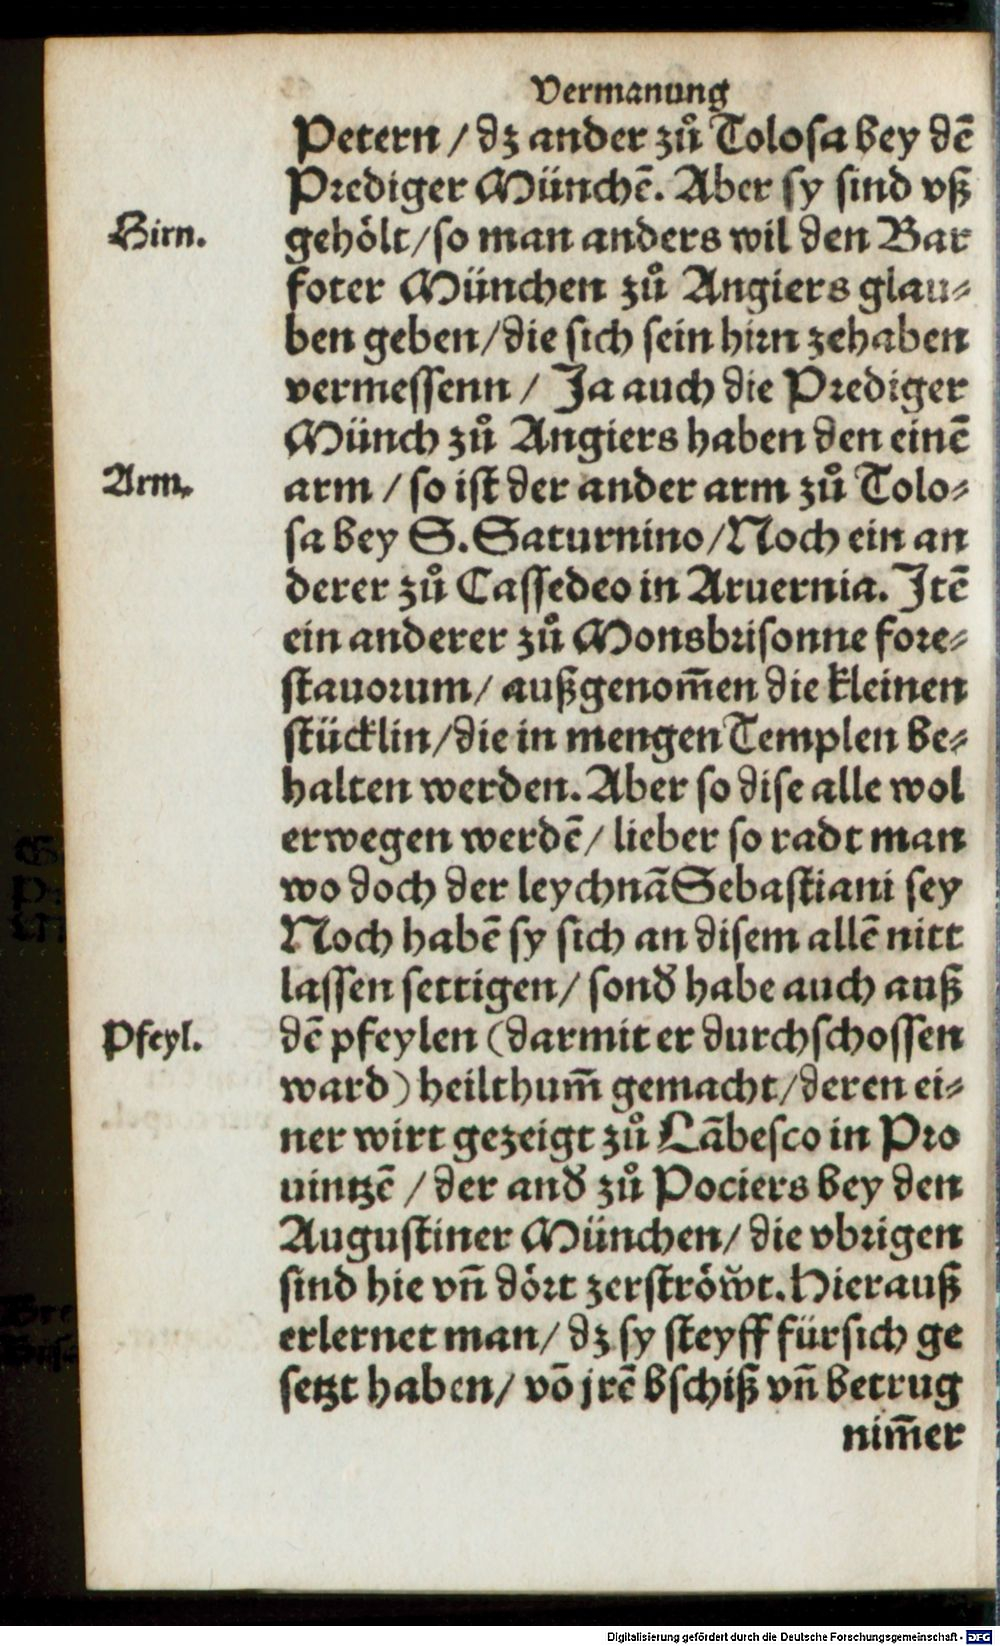 Vermanung
Petern / dz ander zů Tolosa bey dē
Prediger Münchē. Aber sy sind vß
Hirn.
gehölt / so man anders wil den Bar
foter München zů Angiers glau⸗
ben geben / die sich sein hirn zehaben
vermessenn / Ja auch die Prediger
Münch zů Angiers haben den einē
Arm.
arm / so ist der ander arm zů Tolo⸗
sa bey S. Saturnino / Noch ein an
derer zů Cassedeo in Aruernia. Itē
ein anderer zů Monsbrisonne fore⸗
stauorum / außgenom̄en die kleinen
stücklin / die in mengen Templen be⸗
halten werden. Aber so dise alle wol
erwegen werdē / lieber so radt man
wo doch der leychnā Sebastiani sey
Noch habē sy sich an disem allē nitt
lassen settigen / sond̄ habe auch auß
Pfeyl.
dē pfeylen (darmit er durchschossen
ward) heilthum̄ gemacht / deren ei⸗
ner wirt gezeigt zů Lābesco in Pro
uintzē / der and̄ zů Pociers bey den
Augustiner München / die vbrigen
sind hie vn̄ dört zerströwt. Hierauß
erlernet man / dz sy steyff für sich ge
setzt haben / vō jrē bschiß vn̄ betrug
nim̄er
Digitalisierung gefördert durch die Deutsche Forschungsgemeinschaft - DFG